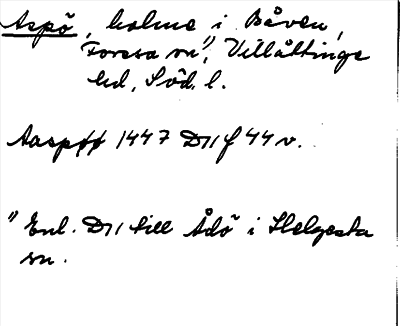 Aspö, holme i Båven,
Forssa sn¹⁾, Villåttinge
hd, Söd. l.
Aaspøø 1447 D11 f 44 v.
¹⁾ Enl. D11 till Ådö i Helgesta
sn.